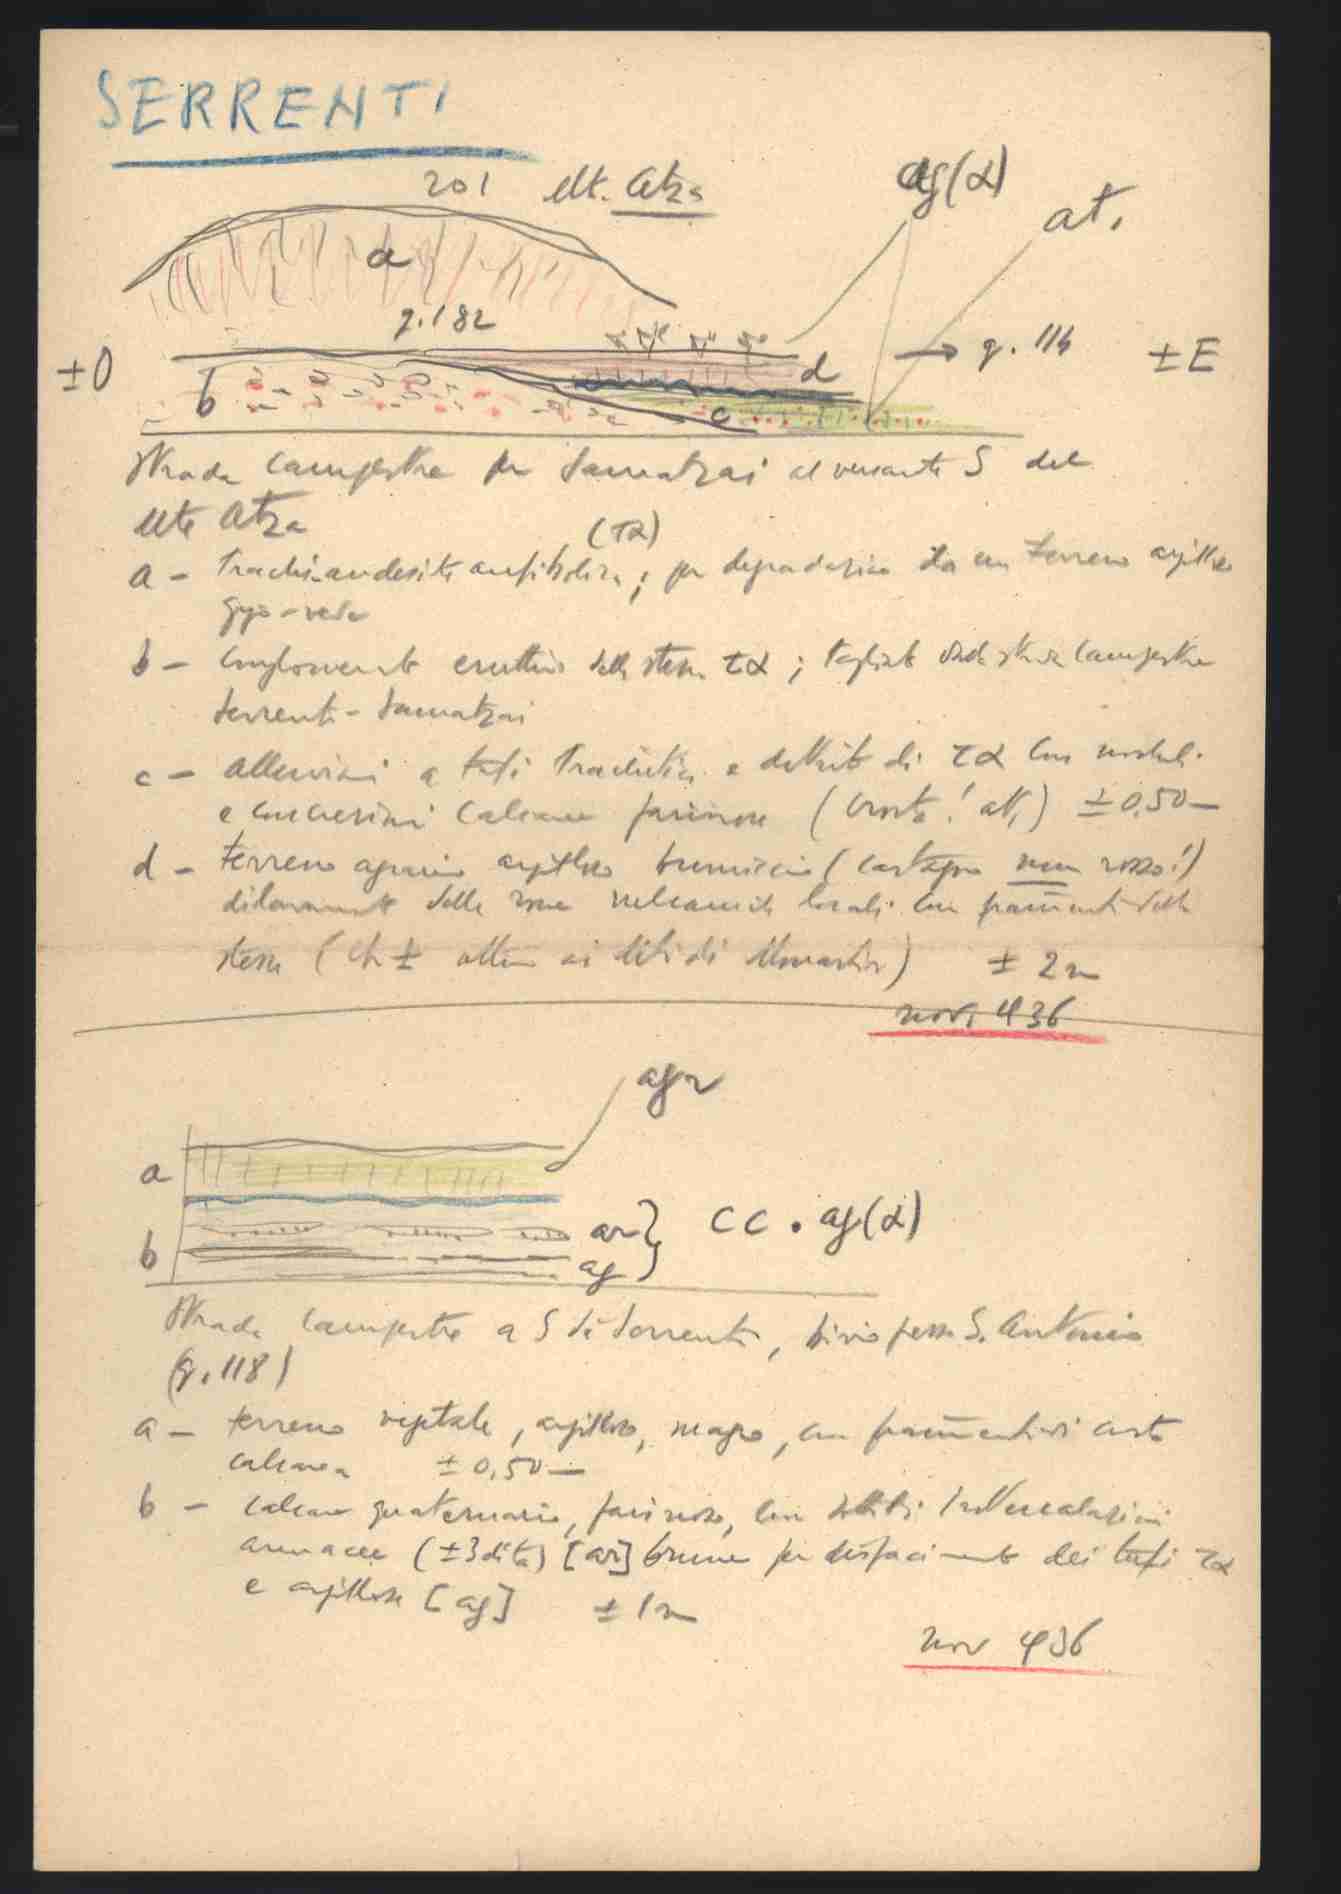 SERRENTI
201 Mt. Atza
ag(α)
at1
a
q. 182
±O
b
d
c
→ q. 114
±E
Strada campestre per Samatzai al versante S del
Mte Atza
(τα)
a – Trachiandesite anfibolica; per degradazione da un terreno argilloso
b – conglomerato eruttivo della stessa τα; tagliato dalla strada campestre
Serrenti – Samatzai
c – alluvioni a tufi trachitici e detriti di τα con noduli
e concrezioni calcaree farinose (crosta! at1) ± 0,50
d – terreno agrario argilloso bruniccio (castagno non rosso!)
dilavamento delle rocce vulcaniche locali con frammenti delle
stesse ( ± ai di Monastir) ± 2 m
nov. 936
agr
a
b
ar
ag
cc . ag(α)
Strada campestre a S di Serrenti, bivio presso S. Antonio
(q. 118)
a – terreno vegetale, argilloso, magro, con frammenti di crosta
calcarea ± 0,50
b – calcare quaternario, farinoso, con sottili intercalazioni
arenacee (±3 dita) [ar] brune per disfacimento dei tufi τα
e argillose [ag] ± 1 m
nov 936